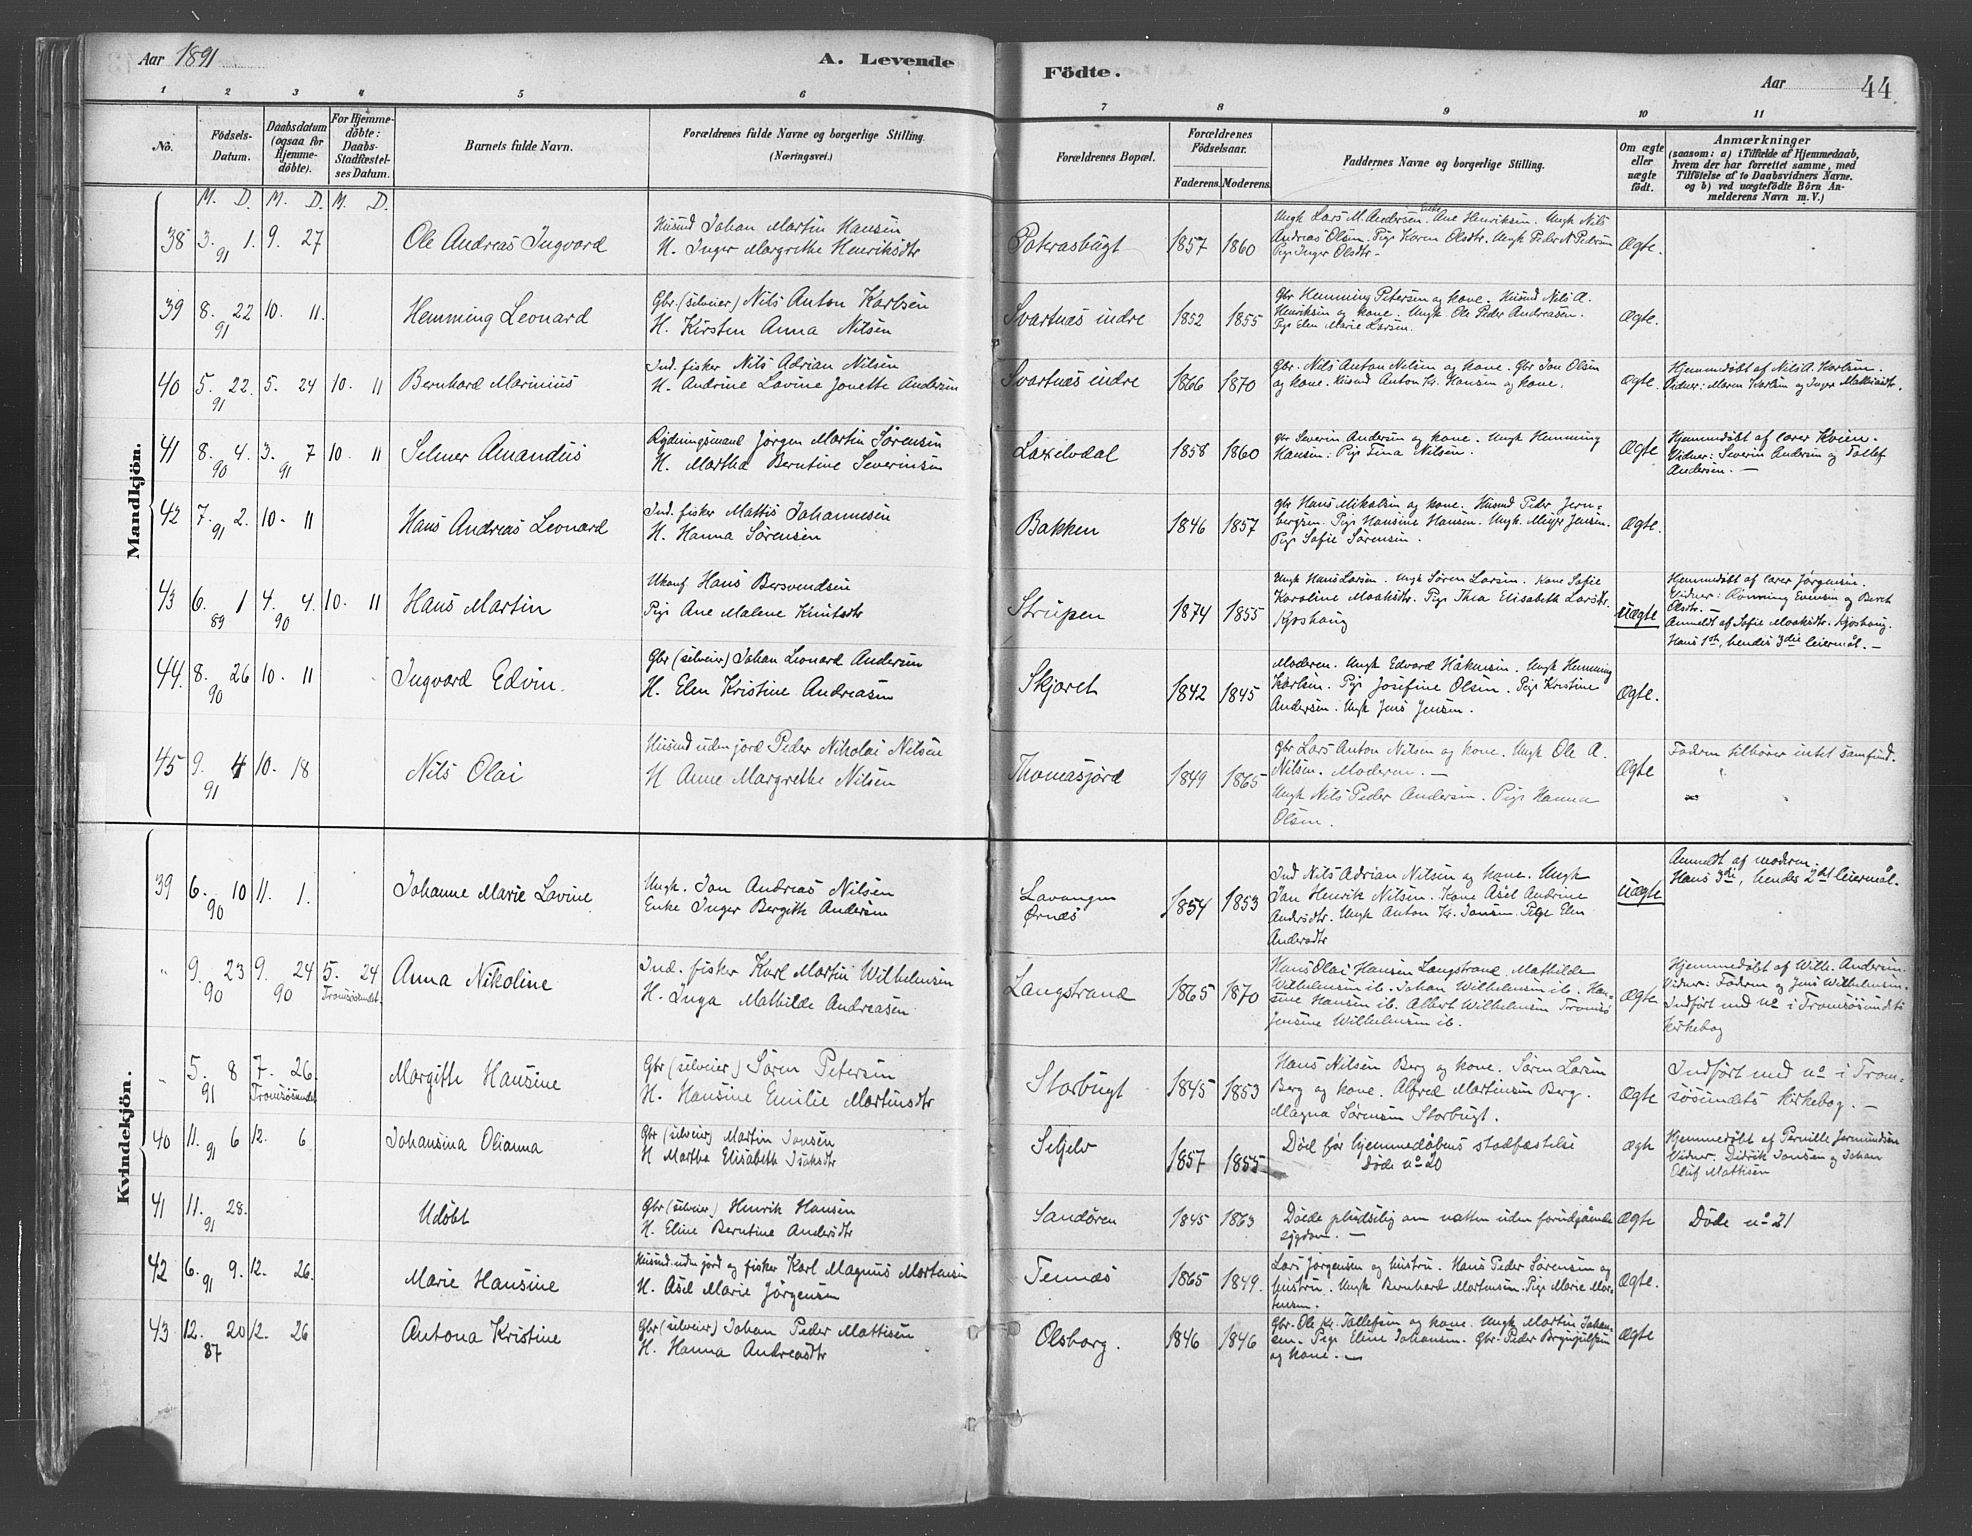 Aar 1891 A. Levende Födte. Aar 44
1 2 3 4 5 6 7 8 9 10 11
No. Födsels-Datum. Daabsdatum (ogsaa for Hjemmedöbte). For Hjemmedöbte: Daabs-Stadfæstelses Datum. Barnets fulde Navn. Forældrenes fulde Navne og borgerlige Stilling. (Næringsvei.) Forældrenes Bopæl. Forældrenes Födselsaar. Faderens. Moderens. Faddernes Navne og borgerlige Stilling. Om ægte eller uægte födt. Anmærkninger (saasom: a) i Tilfælde af Hjemmedaab, hvem der har forrettet samme, med Tilföielse af to Daabsvidners Navne. og b) ved uægtefödte Börn Anmelderens Navn m. V.)
M. D. M. D. M. D.
Mandkjön.
38 3. 1. 91 9. 27 Ole Andreas Ingvard
Husmd Johan Martin Hansen
H. Inger Margrethe Henriksdtr
Patrasbugt 1857 1860
Ungk Lars M. Andersen. Enke Ane Henriksen. Ungk Nils
Andreas Olsen. Pige Karen Olsdtr. Ungk Peder N Pedersen
Pige Inger Olsdtr.
Ægte.
39 8. 22 91 10. 11. Hemming Leonard
Gbr. (selveier) Nils Anton Karlsen
H. Kirsten Anna Nilsen
Svartnæs indre 1852 1855
Gbr Hemming Petersen og kone. Husmd Nils A.
Henriksen og kone. Ungk Ole Peder Andreasen.
Pige Elen Marie Larsen.
Ægte.
40 5. 22. 91 5. 24 10. 11 Bernhard Marinius
Ind. fisker Nils Adrian Nilsen
H. Andrine Lavine Jonette Andersen
Svartnæs indre 1866 1870
Gbr. Nils Anton Nilsen og kone. Gbr Jon Olsen
og kone. Husmd Anton Kr. Hansen og kone.
Ægte.
Hjemmedøbt af Nils A. Karlsen.
Vidner: Maren Karlsen og Inger Mathisdtr.
41 8. 4. 90 3. 7 91 10. 11 Selmer Amandus
Rydningsmand Jørgen Martin Sørensen
H. Martha Berntine Severinsen
Laxelvdal 1858 1860
Gbr Severin Andersen og kone. Ungk Hemming
Hansen. Pige Tina Nilsen.
Ægte
Hjemmedøbt af lærer Kvien.
Vidner: Severin Andersen og Tollef
Andersen. —
42 7. 2. 91 10. 11 Hans Andreas Leonard
Ind. fisker Mattis Johannesen
H. Hanna Sørensen
Bakken 1846 1857
Gbr Hans Mikalsen og kone. Husmd Peder Jern-
bergsen. Pige Hansine Hansen. Ungk. Meyer Jensen.
Pige Sofie Sørensen.
Ægte.
43 6. 1 89 4. 4. 90 10. 11 Hans Martin
Ukonf Hans Bersvendsen
Pige Ane Malene Knutsdtr
Strupen 1874 1855
Ungk Hans Larsen. Ungk Søren Larsen. Kone Sofie
Karoline Moaksdtr. Pige Thea Elisabeth Larsdtr.
Kjoshaug
uægte
Hjemmedøbt af lærer Jørgensen.
Vidner: Rønning Evensen og Berit
Olsdtr. —
Anmeldt af Sofie Moaksdtr. Kjoshaug.
Hans 1ste, hendes 3die leiermål. —
44. 8. 26 90 10. 11 Ingvard Edvin.
Gbr (selveier) Johan Leonard Andersen
H. Elen Kristine Andreasen
Skjæret 1842 1845
Moderen. Ungk Edvard Håkensen. Ungk Hemming
Karlsen. Pige Josefine Olsen. Pige Kristine
Andersen. Ungk Jens Jensen.
Ægte.
45 9. 4 91 10. 18 Nils Olai
Husmd uden jord Peder Nikolai Nilsen
H Anne Margrethe Nilsen
Thomasjord 1849 1865
Gbr Lars Anton Nilsen og kone. Ungk Ole A.
Nilsen. Moderen. —
Ungk Nils Peder Andersen. Pige Hanna
Olsen.
Ægte
Fadren tilhører intet samfund.
Kvindekjön.
39 6. 10 90 11. 1. Johanne Marie Lavine
Ungk. Jon Andreas Nilsen
Enke Inger Bergith Andersen
Lavangen
Ørnæs
1854 1853
Ind Nils Adrian Nilsen og kone. Ungk
Jan Henrik Nilsen. Kone Asel Andrine
Andersdtr. Ungk Anton Kr. Jansen. Pige Elen
Andersdtr
uægte
Anmeldt af moderen.
Hans 3die, hendes 2det leiermål.
" 9. 23 90 9. 24 90 5. 24 Tromsøsundet Anna Nikoline
Ind. fisker Karl Martin Wilhelmsen
H. Inga Mathilde Andreasen
Langstrand 1865 1870
Hans Olai Hansen Langstrand. Mathilde
Wilhelmsen ib. Johan Wilhelmsen ib. Han-
sine Hansen ib. Albert Wilhelmsen Tromsø
Jensine Wilhelmsen ib.
Ægte
Hjemmedøbt af Wilh. Andersen.
Vidner: Fadren og Jens Wilhelmsen.
Indført med no i Tromsøsundets
kirkebog
" 5. 8 91 7. 26. Tromsøsundet Margithe Hansine
Gbr (selveier) Søren Petersen
H. Hansine Emilie Martinsdtr
Storbugt 1845 1853
Hans Nilsen Berg og kone. Søren Larsen
Berg og kone. Alfred Martinsen Berg.
Magna Sørensen Storbugt.
Ægte
Indført med no i Trom-
søsundets kirkebog. —
40 11. 6 91 12. 6 Johansina Olianna
Gbr (selveier) Martin Jonsen
H Martha Elisabeth Isaksdtr
Seljelv 1857 1855
Død før hjemmedøbens stadfæstelse
Døde no 20
Ægte
Hjemmedøbt af Pernille Jermundsen
Vidner. Didrik Jonsen og Johan
Oluf Mattisen
41 11. 28. 91 Udøbt
Gbr (selveier) Henrik Hansen
H. Eline Berntine Andersdtr
Sandøren 1845 1863
Døde pludselig om natten uden forudgående
sygdom. —
Ægte Døde no 21
42 6. 9. 91 12. 26. Marie Hansine
Husmd uden jord og fisker Karl Magnus Mortensen
H. Asel Marie Jørgensen
Tennæs 1865 1849.
Lars Jørgensen og hustru. Hans Peder Sørensen og
hustru. Ungk Bernhard Mortensen. Pige Marie Mor-
tensen.
Ægte.
43 12. 20 87 12. 26 Antona Kristine
Gbr (selveier) Johan Peder Mattisen
H. Hanna Andreasdtr
Olsborg. 1846 1846
Gbr. Ole Kr. Tollefsen og kone. Ungk Martin Johan-
sen. Pige Eline Johansen. Gbr. Peder Brynjulfsen
og kone. —
Ægte